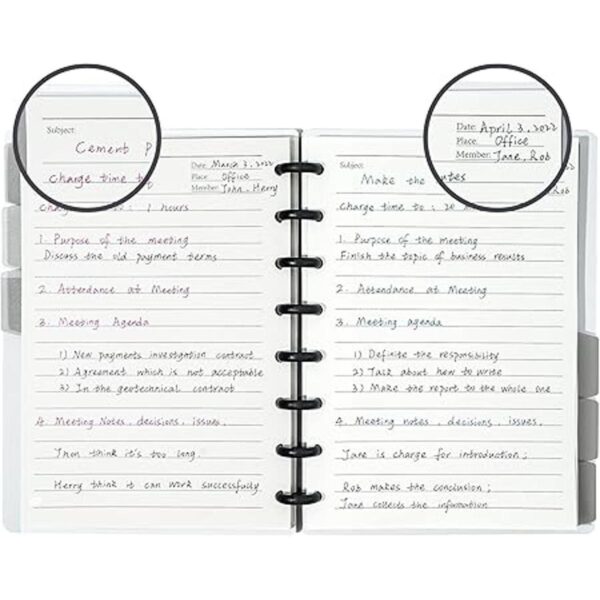 Subject:
Cement P
Date: March 3. 2022
Place: Office
Member: John. Herry
Charge time to
: 1 hours
1. Purpose of the meeting
Discuss the old payment terms
2. Attendance at Meeting
3. Meeting Agenda
1) New payments investigation contract
2) Agreement which is not acceptable
3) In the geotechnical contract
4. Meeting Notes, decisions, issues.
Jhon think it's too long.
Herry think it can work successfully
Subject:
Make the
notes
Date: April 3. 2022
Place: Office
Member: Jane, Rob
Rob
Charge time to : 20
1. Purpose of the meeting
Finish the topic of business results
2. Attendance at Meeting
3. Meeting agenda
1) Definite the responsibility
2) Talk about how to write
3) Make the report to the whole one
4. Meeting notes, decisions, issues.
Jane is charge for introduction;
Rob makes the conclusion;
Jane collects the information